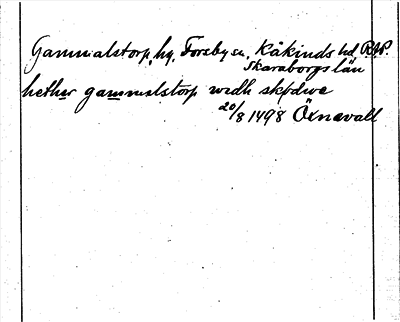 Gammalstorp, hg, Forsby sn, Kåkinds hd, RAP.
Skaraborgs län
hether gammelstorp widh skødwe
20/8 1498 Öxnevall